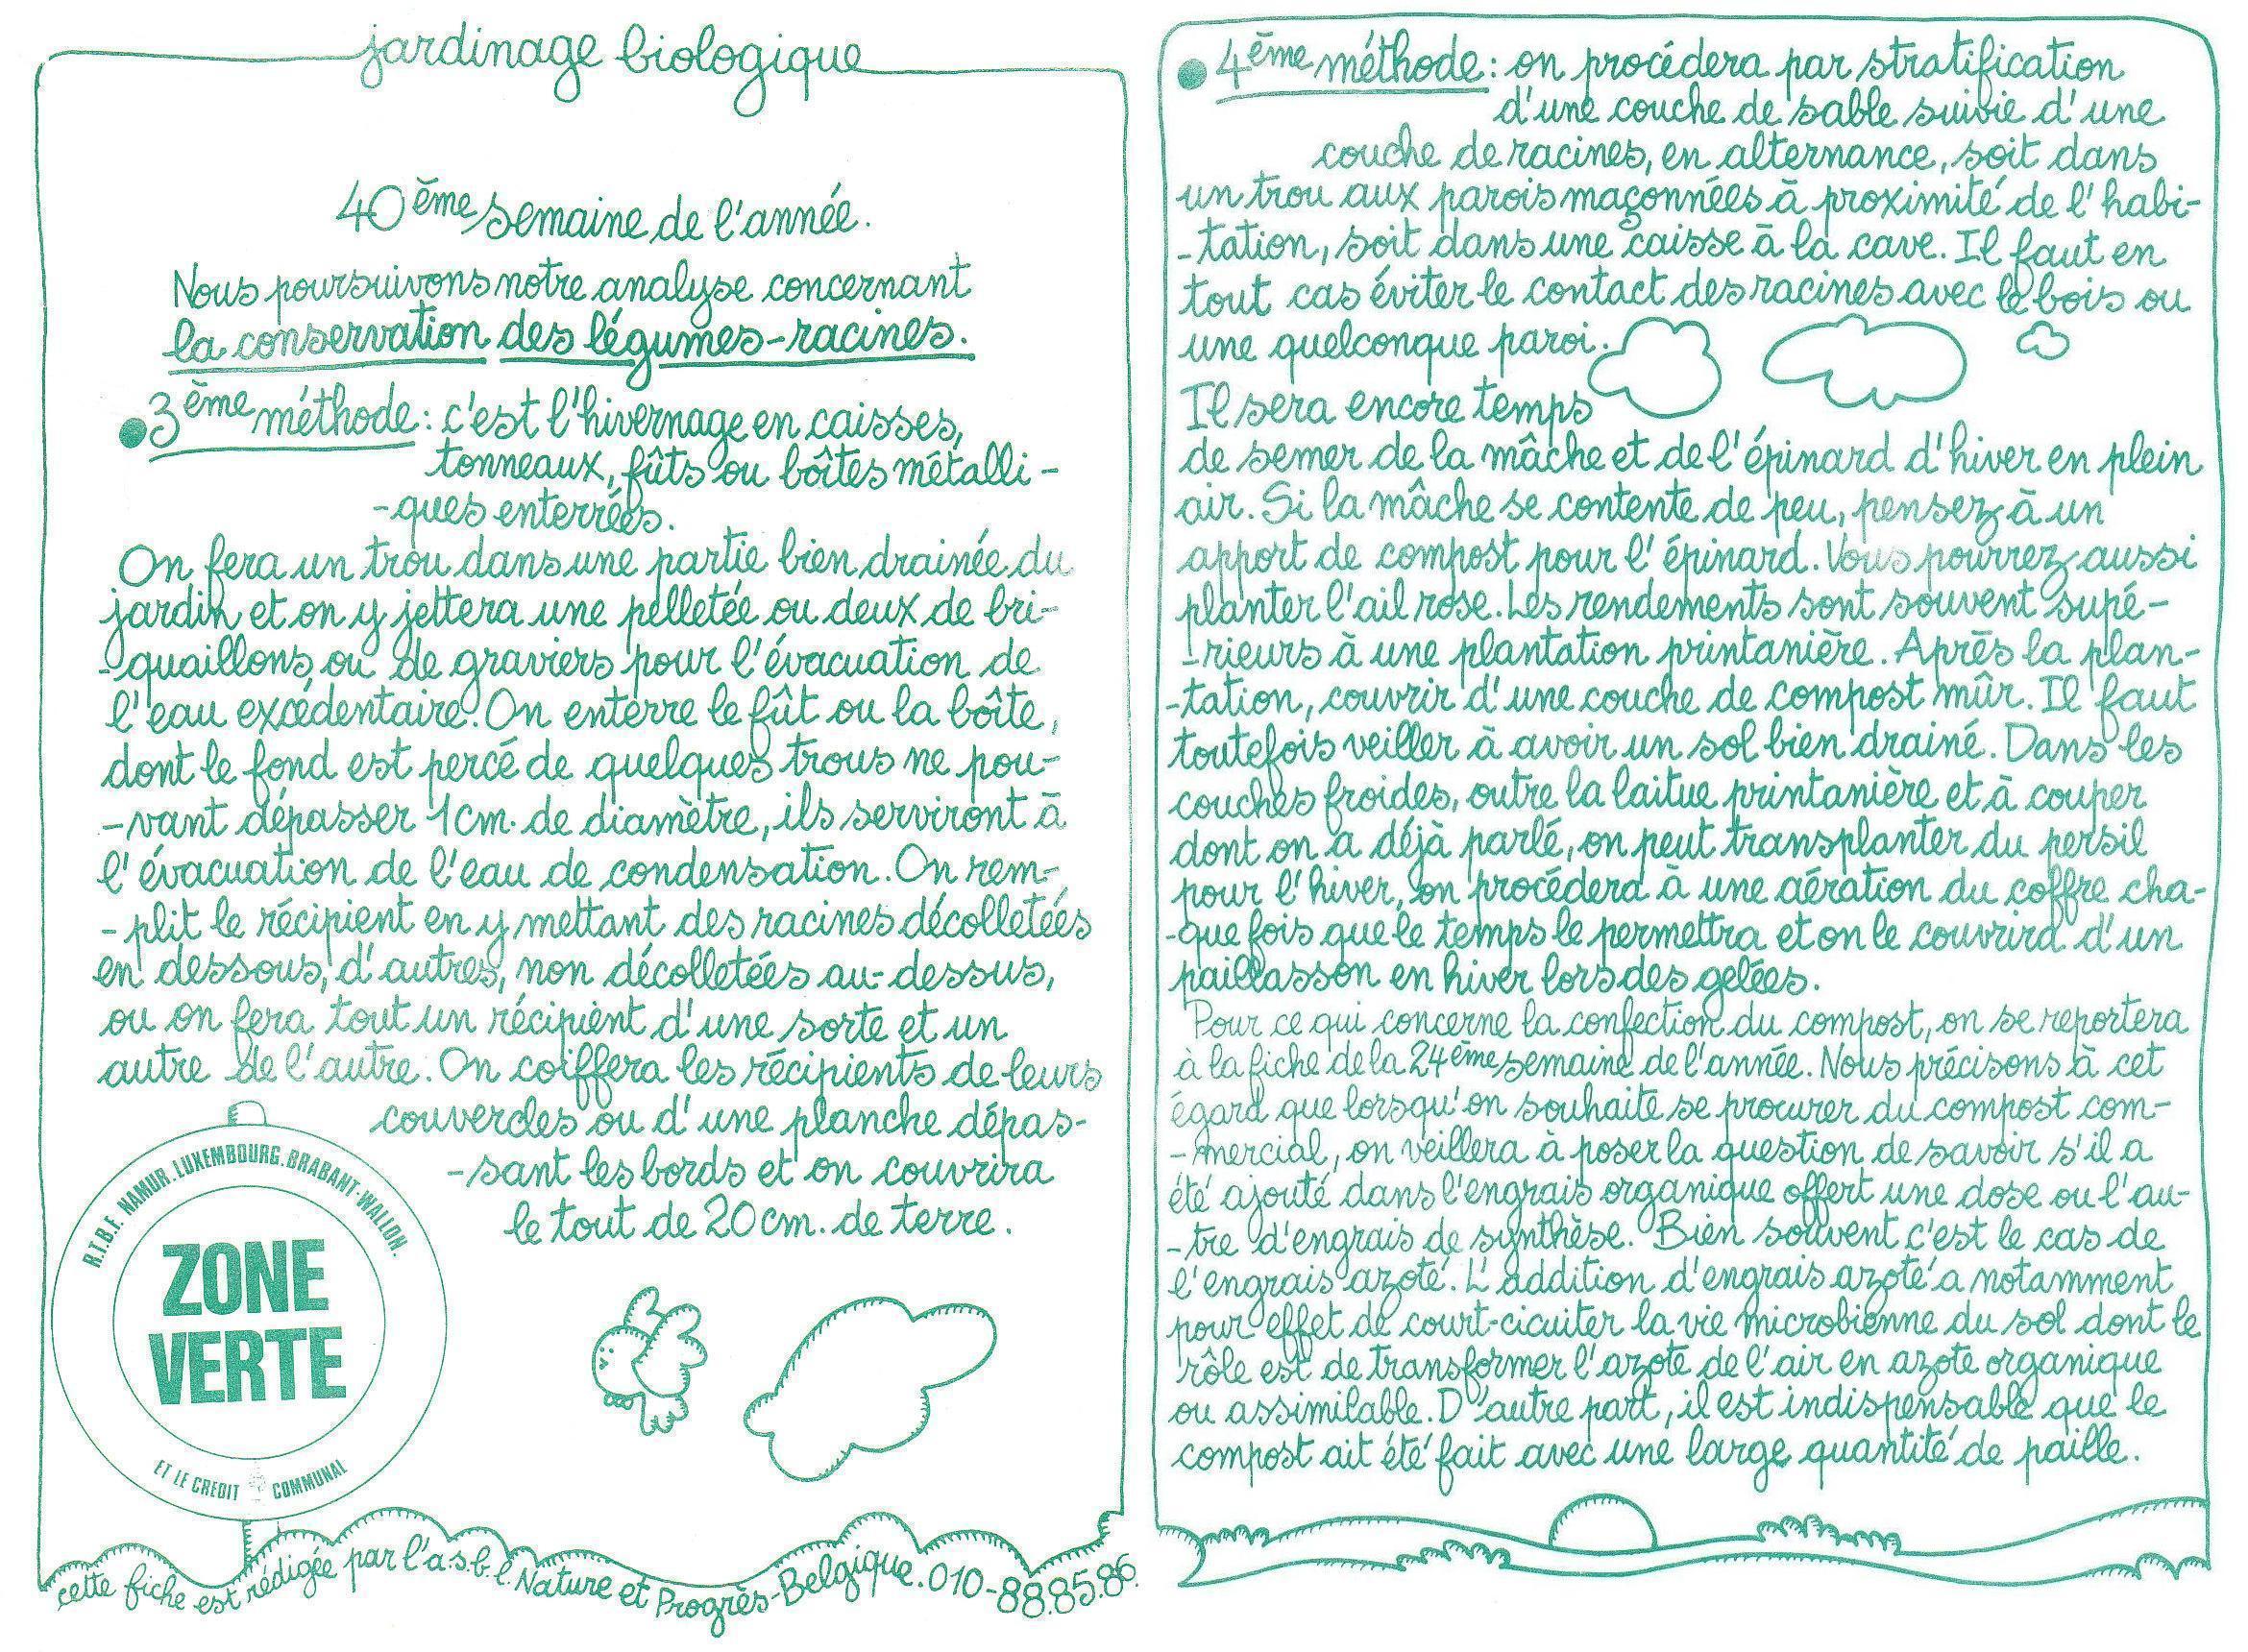 jardinage biologique
40ème semaine de l'année.
Nous poursuivons notre analyse concernant
la conservation des légumes-racines.
•3ème méthode: c'est l'hivernage en caisses,
tonneaux, fûts ou boîtes métalli-
-ques enterrées.
On fera un trou dans une partie bien drainée du
jardin et on y jettera une pelletée ou deux de bri-
-quaillons, ou de graviers pour l'évacuation de
l'eau excédentaire. On enterre le fût ou la boîte,
dont le fond est percé de quelques trous ne pou-
-vant dépasser 1cm. de diamètre, ils serviront à
l'évacuation de l'eau de condensation. On rem-
-plit le récipient en y mettant des racines décolletées
en dessous, d'autres, non décolletées au-dessus,
ou on fera tout un récipient d'une sorte et un
autre de l'autre. On coiffera les récipients de leurs
couvercles ou d'une planche dépas-
-sant les bords et on couvrira
le tout de 20cm. de terre.
R.T.B.F. NAMUR. LUXEMBOURG. BRABANT-WALLON.
ZONE
VERTE
ET LE CREDIT COMMUNAL
cette fiche est rédigée par l'a.s.b.l. Nature et Progrès-Belgique. 010-88.85.86.
•4ème méthode: on procédera par stratification
d'une couche de sable suivie d'une
couche de racines, en alternance, soit dans
un trou aux parois maçonnées à proximité de l'habi-
-tation, soit dans une caisse à la cave. Il faut en
tout cas éviter le contact des racines avec le bois ou
une quelconque paroi.
Il sera encore temps
de semer de la mâche et de l'épinard d'hiver en plein
air. Si la mâche se contente de peu, pensez à un
apport de compost pour l'épinard. Vous pourrez aussi
planter l'ail rose. Les rendements sont souvent supé-
-rieurs à une plantation printanière. Après la plan-
-tation, couvrir d'une couche de compost mûr. Il faut
toutefois veiller à avoir un sol bien drainé. Dans les
couches froides, outre la laitue printanière et à couper
dont on a déjà parlé, on peut transplanter du persil
pour l'hiver, on procédera à une aération du coffre cha-
-que fois que le temps le permettra et on le couvrira d'un
paillasson en hiver lors des gelées.
Pour ce qui concerne la confection du compost, on se reportera
à la fiche de la 24ème semaine de l'année. Nous précisons à cet
égard que lorsqu'on souhaite se procurer du compost com-
-mercial, on veillera à poser la question de savoir s'il a
été ajouté dans l'engrais organique offert une dose ou l'au-
-tre d'engrais de synthèse. Bien souvent c'est le cas de
l'engrais azoté. L'addition d'engrais azoté a notamment
pour effet de court-cicuiter la vie microbienne du sol dont le
rôle est de transformer l'azote de l'air en azote organique
ou assimilable. D'autre part, il est indispensable que le
compost ait été fait avec une large quantité de paille.